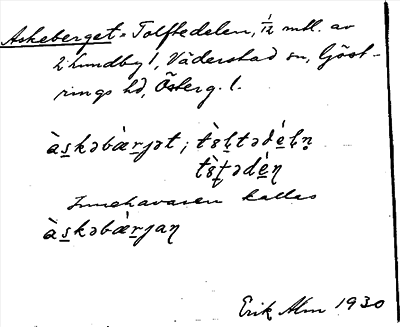 Askeberget = Tolftedelen, 1/12 mtl. av
2 Lundby 1, Väderstad sn, Göst-
rings hd, Österg. l.
àskəbæ̀rjət; tòltədéln
tòtədén
Innehavaren kallas
àskəbæ̀rjan
Erik Alm 1930